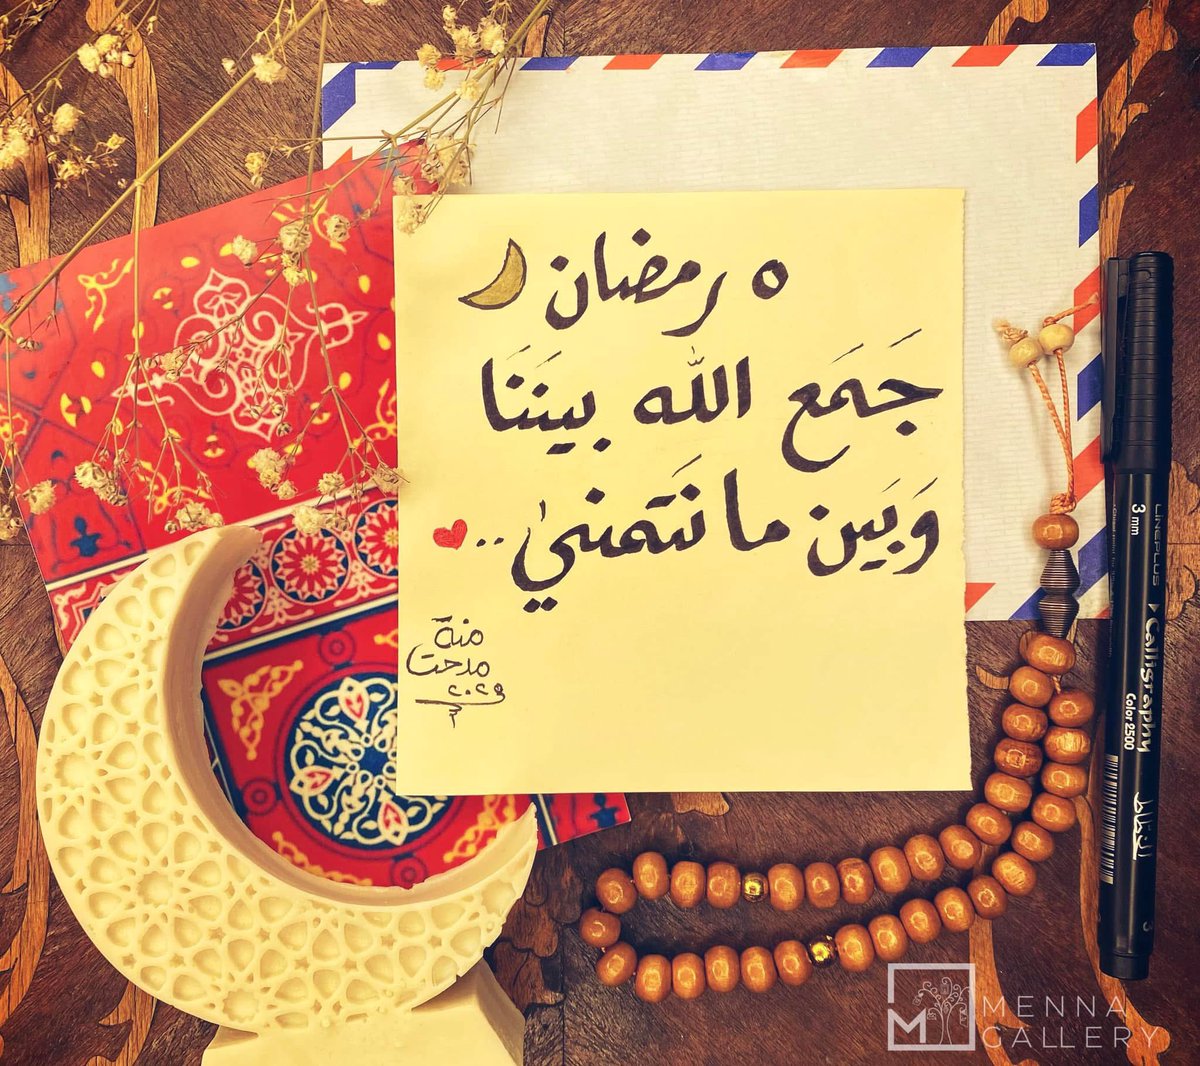 ٥ رمضان
جَمَع الله بينَنَا
وَبَين ما نَتمنيٰ ..
منة
مدحت
3 mm
LINEPLUS
Calligraphy
Color 2500
الخطاط
3
M
MENNA
GALLERY